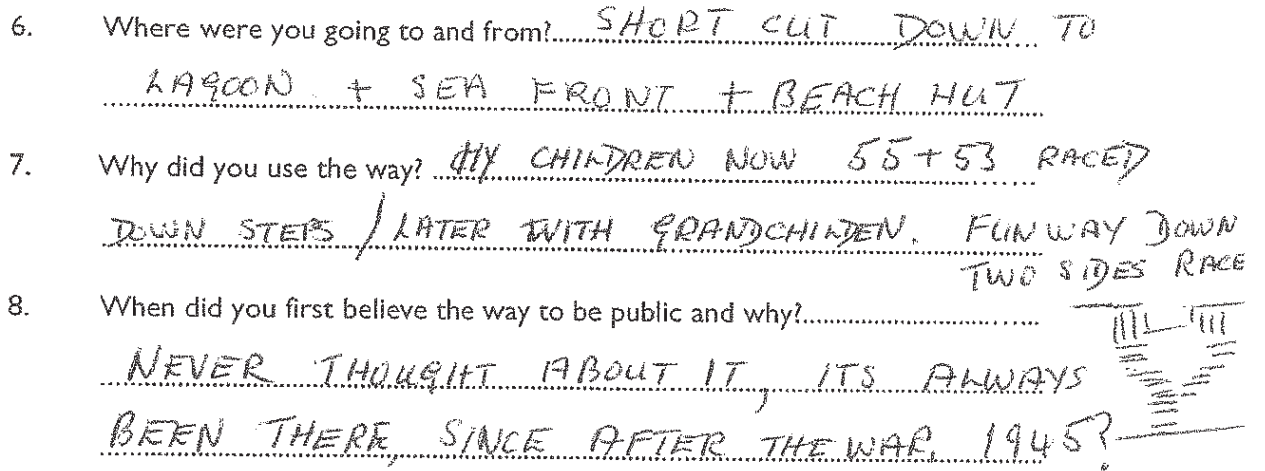 6. Where were you going to and from? SHORT CUT DOWN TO
LAGOON + SEA FRONT + BEACH HUT
7. Why did you use the way? MY CHILDREN NOW 55+53 RACED
DOWN STEPS / LATER WITH GRANDCHILDEN. FUN WAY DOWN
TWO SIDES RACE
8. When did you first believe the way to be public and why?
NEVER THOUGHT ABOUT IT, ITS ALWAYS
BEEN THERE, SINCE AFTER THE WAR. 1945?